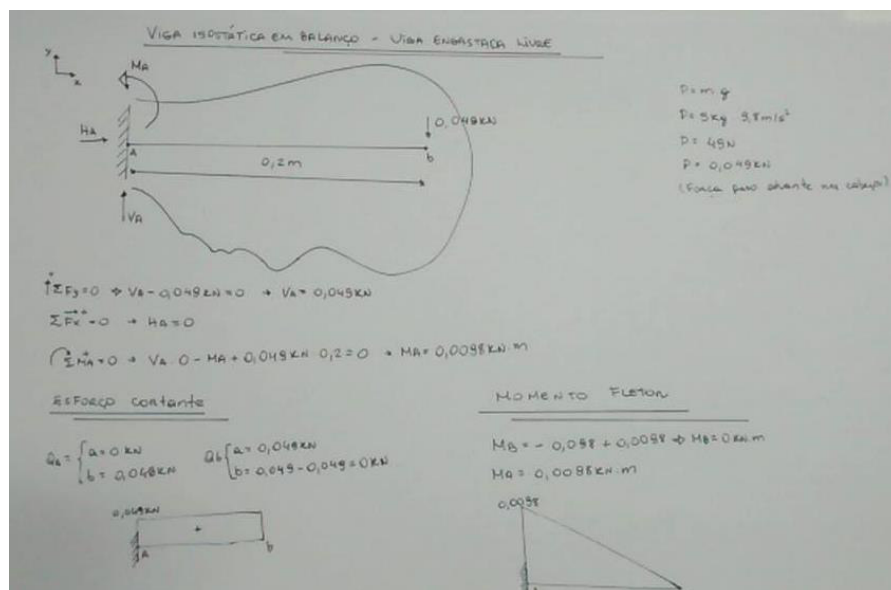 VIGA ISOSTÁTICA EM BALANÇO - VIGA ENGASTAÇA LIVRE
y
x
MA
HA
A
0,049KN
b
0,2m
VA
P= m g
P= 5Kg 9,8m/s²
P= 49N
P= 0,049KN
(Força peso atuante na cabeça)
ΣFy=0 → VA-0,049KN=0 → VA=0,049KN
ΣFx=0 → HA=0
ΣMA=0 → VA 0 - MA + 0,049KN 0,2=0 → MA=0,0098KN.m
ESFORÇO cortante
QA = { a=0 KN
b= 0,049KN
Qb { a= 0,049KN
b= 0,049-0,049=0KN
0,049KN
+
A
b
MOMENTO FLETOR
MB= - 0,098 + 0,0098 → MB=0KN.m
MA= 0,0098KN.m
0,0098